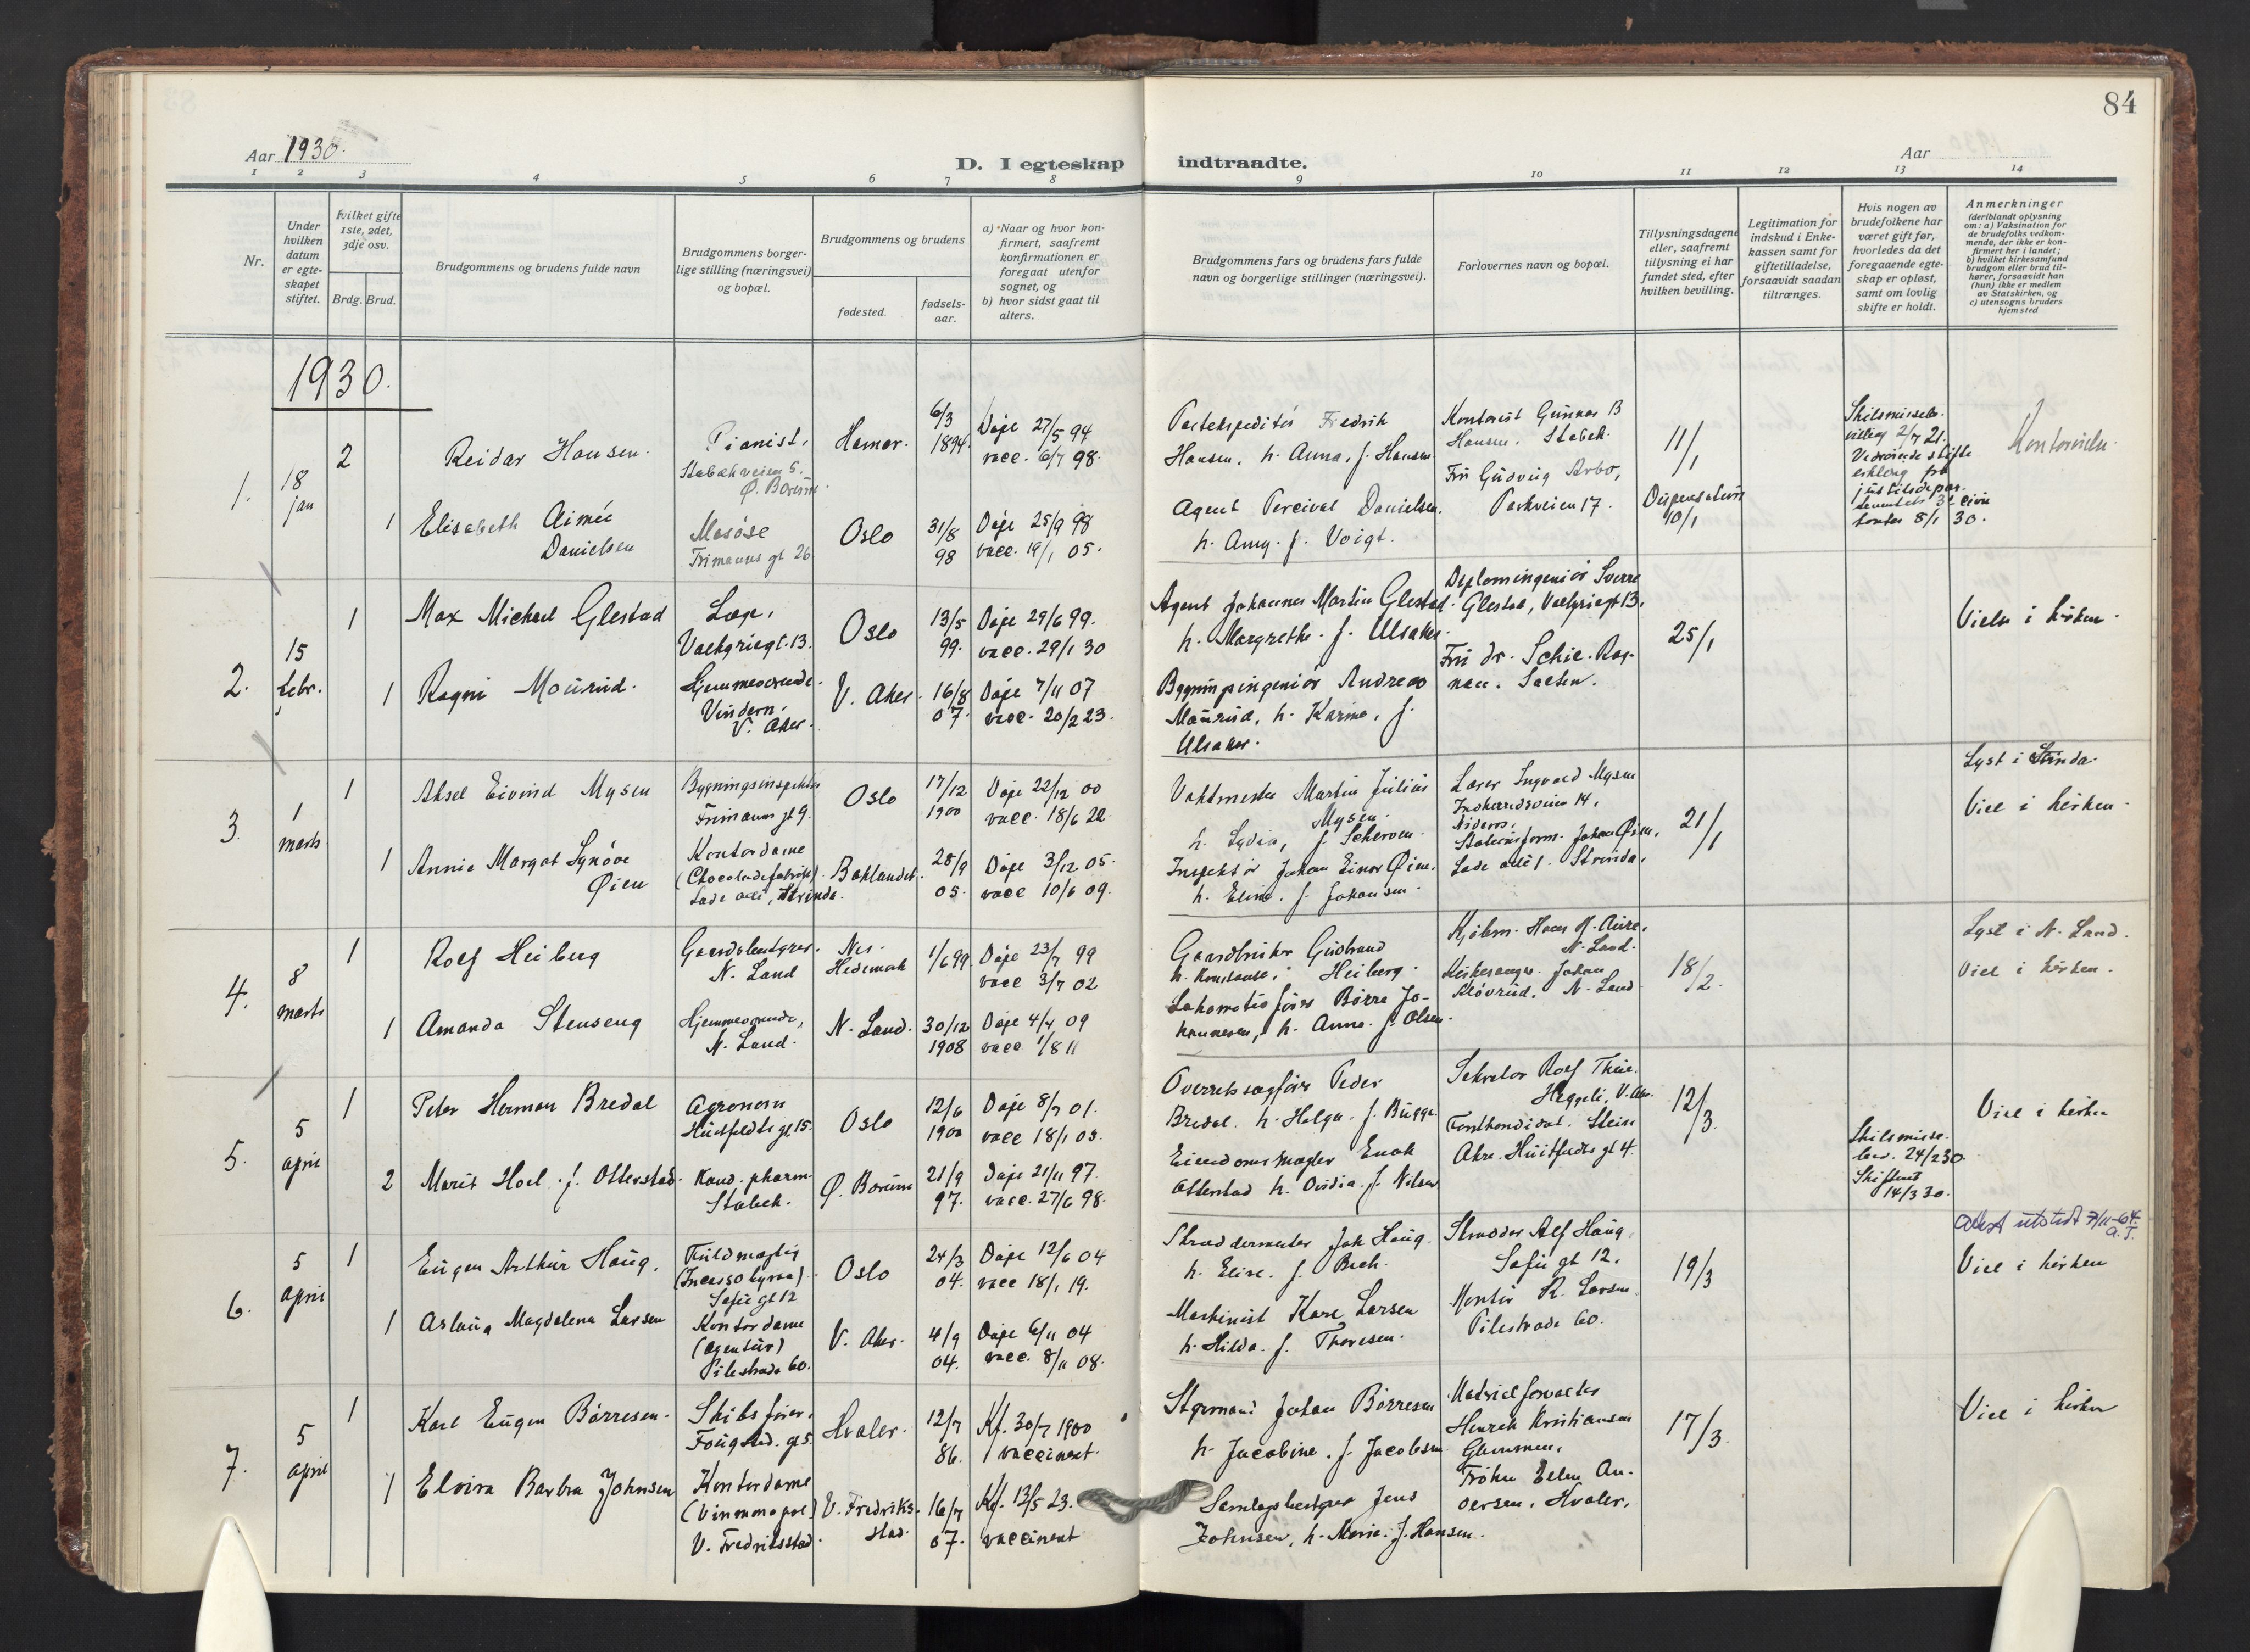 84
Aar 1930.
D. I egteskap indtraadte.
Aar
1 2 3 4 5 6 7 8 9 10 11 12 13 14
Nr.
Under
hvilken
datum
er egte-
skapet
stiftet.
hvilket gifte
1ste, 2det,
3dje osv.
Brdg. Brud.
Brudgommens og brudens fulde navn
Brudgommens borger-
lige stilling (næringsvei)
og bopæl.
Brudgommens og brudens
fødested.
fødsels-
aar.
a) Naar og hvor kon-
firmert, saafremt
konfirmationen er
foregaat utenfor
sognet, og
b) hvor sidst gaat til
alters.
Brudgommens fars og brudens fars fulde
navn og borgerlige stillinger (næringsvei).
Forlovernes navn og bopæl.
Tillysningsdagene
eller, saafremt
tillysning ei har
fundet sted, efter
hvilken bevilling.
Legitimation for
indskud i Enke-
kassen samt for
giftetilladelse,
forsaavidt saadan
tiltrænges.
Hvis nogen av
brudefolkene har
været gift før,
hvorledes da det
foregaaende egte-
skap er opløst,
samt om lovlig
skifte er holdt.
Anmerkninger
(deriblandt oplysning
om: a) Vaksination for
de brudefolks vedkom-
mende, der ikke er kon-
firmert her i landet;
b) hvilket kirkesamfund
brudgom eller brud til-
hører, forsaavidt han
(hun) ikke er medlem
av Statskirken, og
c) utensogns bruders
hjemsted
1930.
1.
18
jan
2
Reidar Hansen.
Pianist.
Stabækveien 5.
Ø. Bærum.
Hamar.
6/3
1894.
Døpt 27/5 94
vacc. 6/7 98.
Hansen, h. Anna, f. Hansen
Kontorist Gunnar B
Hansen. Stabek.
11/1
1
Elisabeth Aimée
Danielsen
Frimanns gt 26
Oslo
31/8
98
Døpt 25/9 98
vacc. 19/1 05.
Agent Percival Danielsen.
h. Anny. f. Voigt.
Fru Gudveig Arbo,
Parkveien 17.
Dispensation
10/1
8/1 30.
2.
15
febr.
1
Max Michael Glestad
Læge,
13.
Oslo
13/5
99.
Døpt 29/6 99.
vacc. 29/1 30
Agent Johannes Martin Glestad.
h. Margrethe. f. Ulsaker.
Diplomingeniør Sverre
Glestad, 13.
25/1
Vielse i kirken.
1
Ragni Maurud.
Hjemmeværende.
Vindern.
V. Aker.
V. Aker.
16/8
07.
Døpt 7/11 07
vacc. 20/2 23.
Bygningsingeniør Andreas
Maurud, h. Karina, f.
Ulsaker.
3.
1
marts
1
Aksel Eivind Mysen
Bygningsinspektør
Frimanns gt 9.
Oslo
17/12
1900
Døpt 22/12 00
vacc. 18/6 22.
Vaktmester Martin Julius
Mysen.
h. Lydia, f.
Lærer Ingvald Mysen
Innherredsveien 14,
Nidaros.
21/1
Lyst i Strinda.
Viet i kirken.
1
Annie Margot Synøve
Øien
Kontordame
(Chocoladefabrik)
Lade allé, Strinda.
Baklandet.
28/9
05.
Døpt 3/12 05.
vacc 10/6 09.
Inspektør Johan Einar Øien.
h. Eline. f. Johansen.
Stationsform. Johan Øien.
Lade allé 1. Strinda.
4.
8
marts
1
Rolf Heiberg
N. Land
Nes.
Hedemark
1/6 99.
Døpt 23/7 99
vacc 3/7 02
Gaardbruker Gudbrand
Heiberg.
h. Konstanse,
Kjøbm. Hans
N. Land.
Kirkesanger Johan
Kløvrud. N. Land
18/2.
Lyst i N. Land.
Viet i kirken.
1
Amanda Stenseng
Hjemmeværende,
N. Land.
N. Land.
30/12
1908
Døpt 4/4 09
vacc 1/8 11
Lokomotivfører Børre Jo-
hannesen, h. Anna. f. Olsen.
5.
5
april
1
Peter Herman Bredal
Agronom
Huitfeldts gt. 15.
Oslo
12/6
1900
Døpt 8/7 01.
vacc 18/1 03.
Overretssagfører Peder
Bredal. h. Helga. f. Bugge.
Sekretær Rolf
Heggeli, V. Aker.
12/3.
Viet i kirken
2
Marit Hoel. f. Otterstad.
Kand. pharm.
Stabek.
Ø. Bærum
21/9
97.
Døpt 21/11 97.
vacc. 27/6 98.
Eiendomsmægler Enok
Otterstad h. Ovidia. f. Nilsen
Forstkandidat. Stein
Huitfeldts gt 4.
Skilsmisse-
bev. 24/2 30
14/3 30.
6.
5
april
1
Eugen Arthur Haug.
Fuldmægtig
(Incassobyraa).
Sofie gt 12
Oslo
24/3
04.
Døpt 12/6 04
vacc 18/1 19.
Skræddermester Joh Haug.
h. Elise. f. Bech.
Skrædder Alf Haug,
Sofie gt 12.
19/3
Attest utstedt 7/11-64.
A.J.
Viet i kirken
1
Aslaug Magdalena Larsen
Kontordame
(agentur)
Pilestræde 60.
V. Aker.
4/9
04.
Døpt 6/11 04
vacc. 8/11 08.
Maskinist Karl Larsen
h. Hilda. f. Thoresen.
Montør R. Larsen
Pilestræde 60.
7.
5
april
1
Karl Eugen Børresen.
Skibsfører.
Fougstad. gt 5.
Hvaler.
12/7
86.
Kf. 30/7 1900
vaccinert.
Styrmand Johan Børresen
h. Jacobine. f. Jacobsen
Materialforvalter
Henrik Kristiansen
Glemmen.
17/3.
Viet i kirken
1
Elvira Barbra Johnsen
Kontordame
(Vinmonopol)
V. Fredriksstad.
V. Fredriks-
stad.
16/7
07.
Kf. 13/5 23.
vaccinert
Samlagsbestyrer Jens
Johnsen, h. Marie. f. Hansen.
Frøken Ellen An-
dersen, Hvaler.